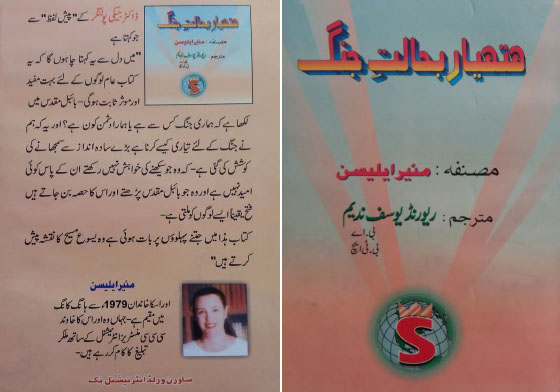 ڈاکٹر جیکی پولنگر کے "پیش لفظ" سے
جو کہتا ہے
"میں دل سے یہ کہنا چاہوں گا کہ یہ
کتاب عام لوگوں کے لئے بہت مفید
اور موثر ثابت ہوگی۔ بائبل مقدس میں
لکھا ہے کہ ہماری جنگ کس سے ہے یا ہمارا دشمن کون ہے؟ اور یہ کہ ہم
نے جنگ کے لئے تیاری کیسے کرنا ہے بڑے سادہ انداز سے سمجھانے کی
کوشش کی گئی ہے۔ کہ وہ جو سیکھنے کی خواہش نہیں رکھتے ان کے پاس کوئی
امید نہیں ہے اور وہ جو بائبل مقدس پڑھتے اور اس کا حصہ بن جاتے ہیں
فتح یقیناً ایسے لوگوں کو ملتی ہے۔
کتاب ہذا میں جتنے پہلوؤں پر بات ہوئی ہے وہ یسوع مسیح کا نقشہ پیش
کرتے ہیں"
ہتھیار بحالتِ جنگ
مصنفہ : منیر ایلیسن
مترجم : ریورنڈ یوسف ندیم
S
منیر ایلیسن
اور اسکا خاندان 1979ء سے ہانگ کانگ
میں مقیم ہے۔ جہاں وہ اور اس کا خاوند
سی سی سی منسٹریز انٹرنیشنل کے ساتھ ملکر
تبلیغ کا کام کر رہے ہیں۔
ساورن ورلڈ انٹرنیشنل بک
ہتھیار بحالتِ جنگ
مصنفہ : منیر ایلیسن
مترجم : ریورنڈ یوسف ندیم
بی۔اے
بی۔ٹی ایچ
S